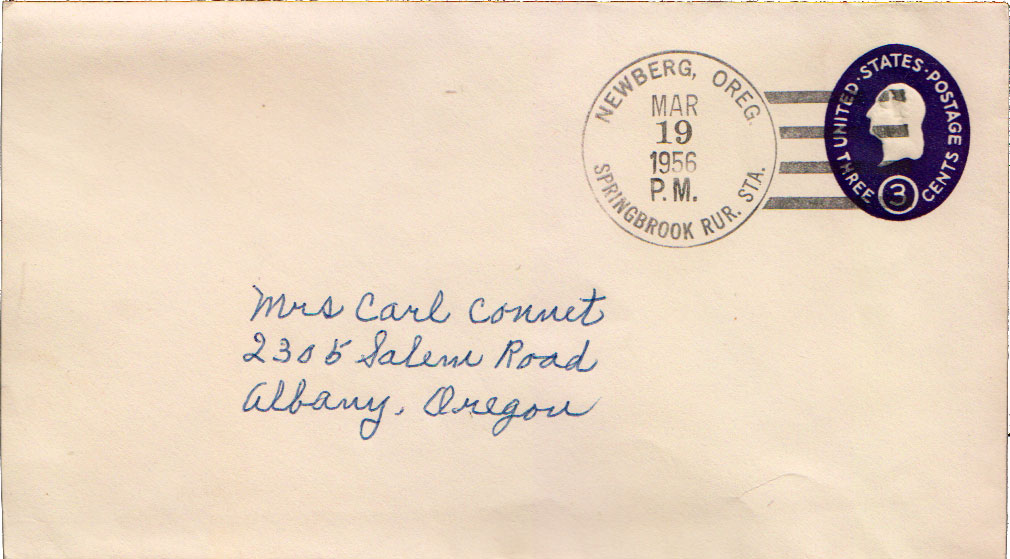 NEWBERG, OREG.
MAR
19
1956
P.M.
SPRINGBROOK RUR. STA.
UNITED·STATES·POSTAGE
THREE 3 CENTS
Mrs Carl Connet
2305 Salem Road
Albany, Oregon